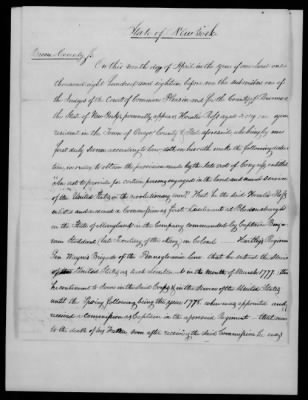 State of New York
County ss.
On this ninth day of April in the year of our Lord one
thousand eight hundred and eighteen before me the subscriber one
of the Judges of the Court of Common Pleas in and for the County of
the State of New York, personally appears Horatio Ross aged
resident in the Town of Owego County & State aforesaid who being by me
first duly Sworn according to law doth on his oath make the following declara-
tion, in order to obtain the provision made by the late act of Congress entitled
"An act to provide for certain persons engaged in the land and naval service
of the United States in the revolutionary war" That he the said Horatio Ross
a Commission as first Lieutenant at Bladensburgh
in the State of Maryland in the Company commanded by Captain Benja-
min Stoddert (late Secretary of the Navy) in Colonel Hartley's Regiment
Gen Wayne's Brigade of the Pennsylvania line that he entered the Service
of the United States as such Lieutenant in the month of March 1777. that
he continued to serve in the said Corps & in the Service of the United States
until the Spring following being the year 1778 when was appointed and
received a Commission as Captain in the aforesaid Regiment — That owing
to the death of his Father soon after receiving the said Commission he was